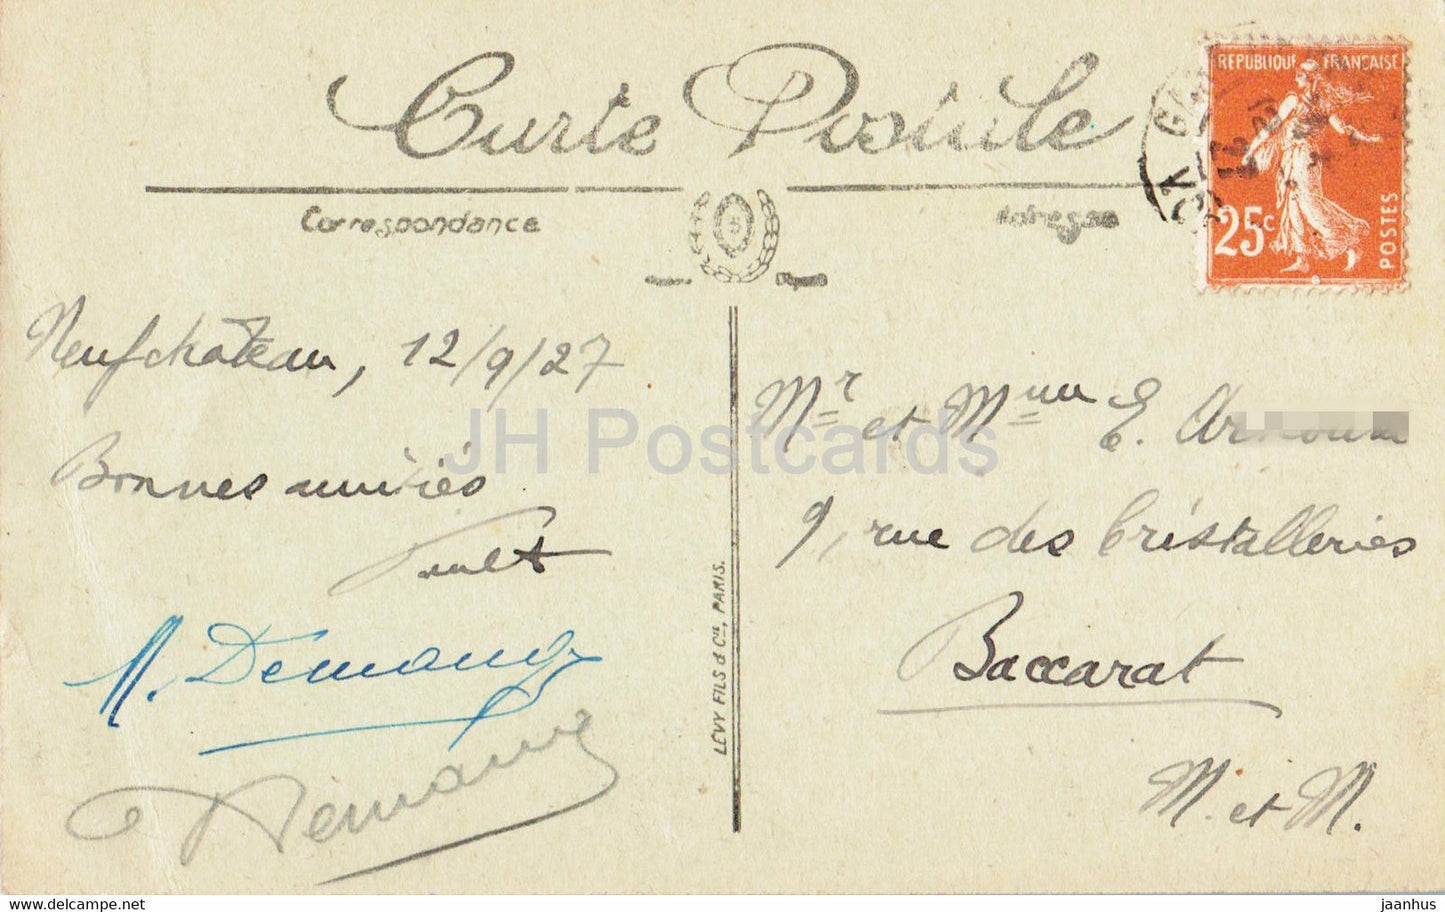 Carte Postale
Correspondance
Adresse
REPUBLIQUE FRANÇAISE
25c
POSTES
Neufchâteau, 12/9/27
Bonnes amitiés
M. Demange
Demange
LÉVY FILS & Cie, PARIS.
Mr et Mme E.
9, rue des Cristalleries
Baccarat
M. et M.
JH Postcards
jaanhus